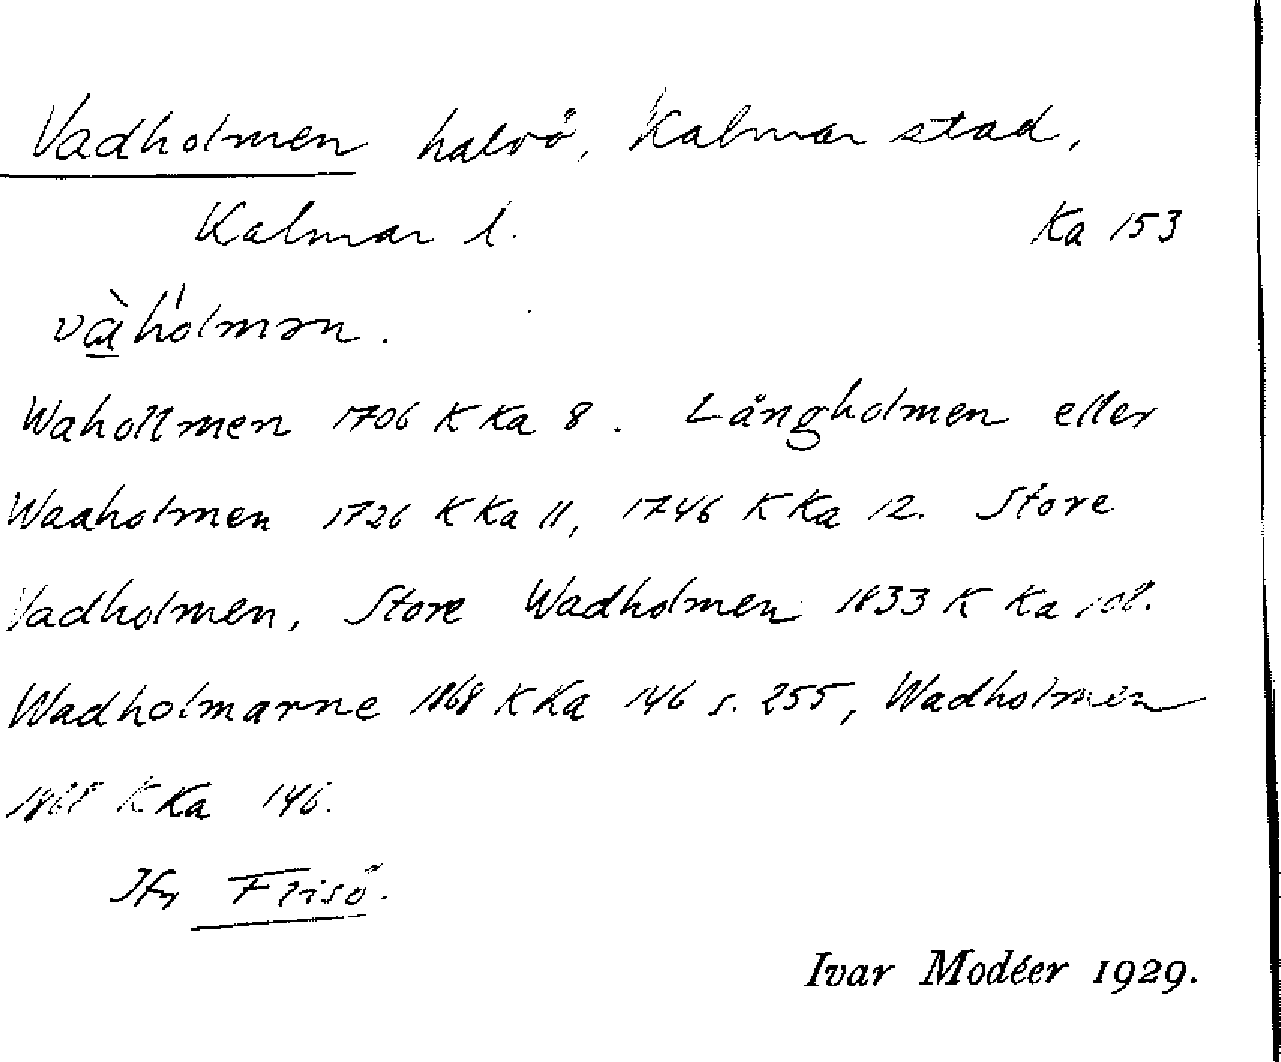 Vadholmen halvö, Kalmar stad,
Kalmar l. Ka 153
và̱hólmən.
Wahollmen 1706 K Ka 8. Långholmen eller
Waaholmen 1726 K Ka 11, 1746 K Ka 12. Store
Vadholmen, Store Wadholmen 1833 K Ka 108.
Wadholmarne 1868 K Ka 146 s. 255, Wadholmen
1868 K Ka 146.
Jfr
Ivar Modéer 1929.